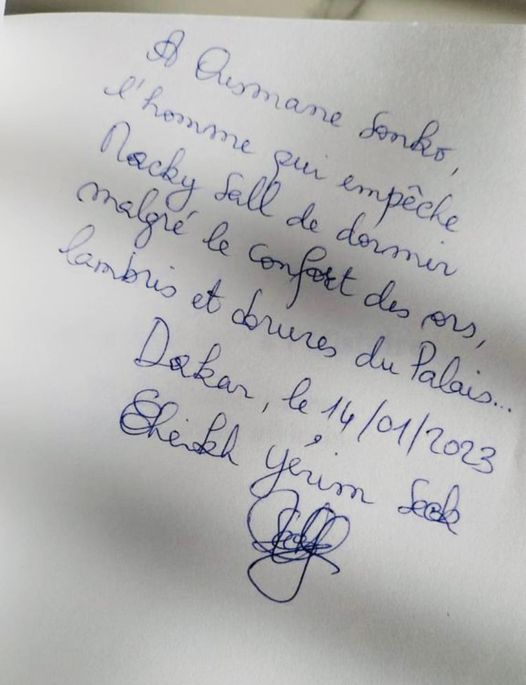 A Ousmane Sonko,
l'homme qui empêche
Macky Sall de dormir
malgré le confort des ors,
lambris et dorures du Palais...
Dakar, le 14/01/2023
Cheikh Yérim Seck